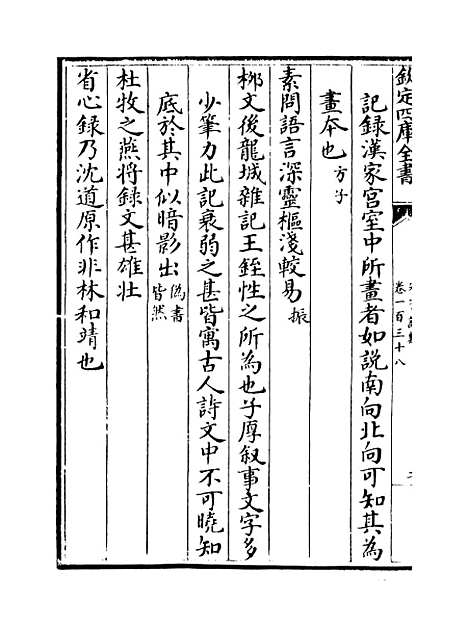 欽定四庫全書
卷一百三十八
記録漢家宫室中所畫者如說南向北向可知其為
畫本也方子
素問語言深靈樞淺較易振
栁文後龍城雜記王銍性之所為也子厚叙事文字多
少筆力此記衰弱之甚皆寓古人詩文中不可曉知
底於其中似暗影出偽書皆然
杜牧之燕將録文甚雄壯
省心録乃沈道原作非林和靖也